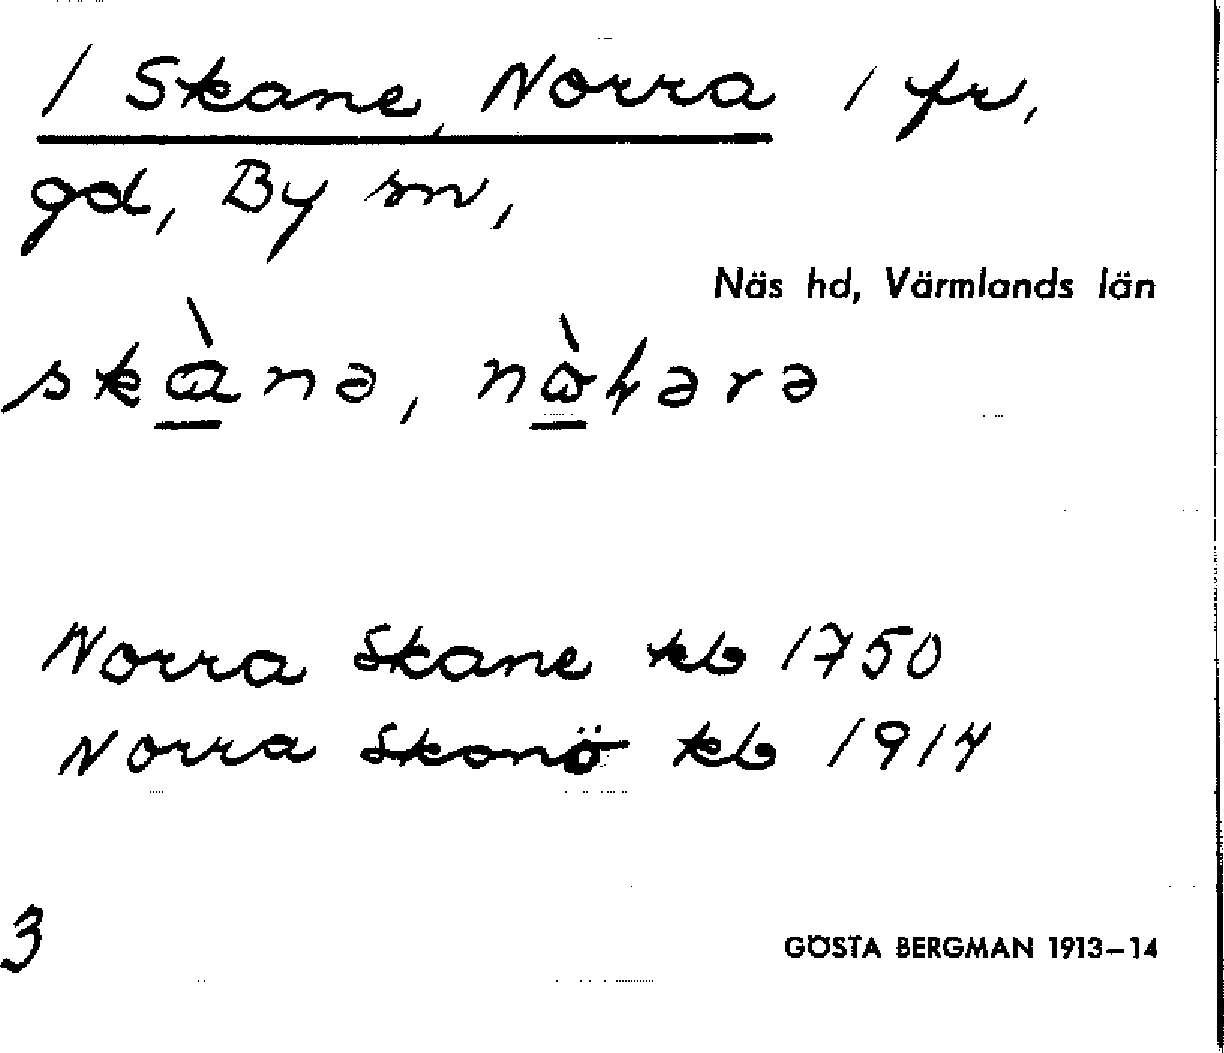 / Skane, Norra / fr,
gd, By sn,
Näs hd, Värmlands län
Norra Skane kb 1750
Norra Skonö kb 1914
3
GÖSTA BERGMAN 1913–14